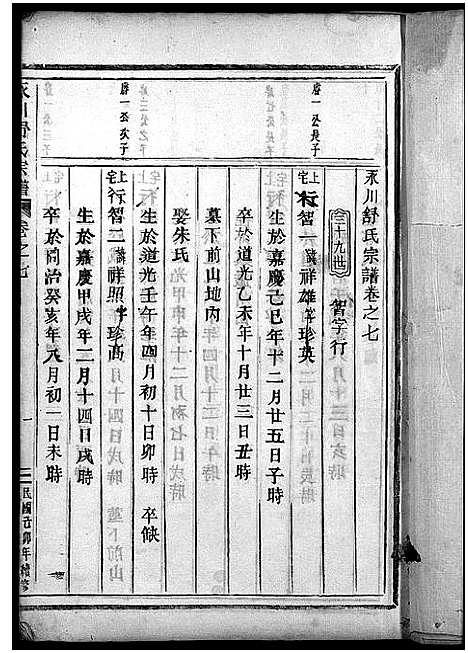 永川舒氏宗譜卷之七
三十九世　智字行
啓一公長子
上宅行智一諱祥雄字珍英
生於嘉慶己巳年十二月廿五日子時
卒於道光乙未年十月廿三日丑時
墓下前山地內
娶朱氏
生於道光壬午年四月初十日卯時　卒缺
啓一公次子
上宅行智二諱祥照字珍高
生於嘉慶甲戌年二月十四日戌時
卒於同治癸亥年八月初一日未時
永川舒氏宗譜　卷之七　一　民國己卯年續修